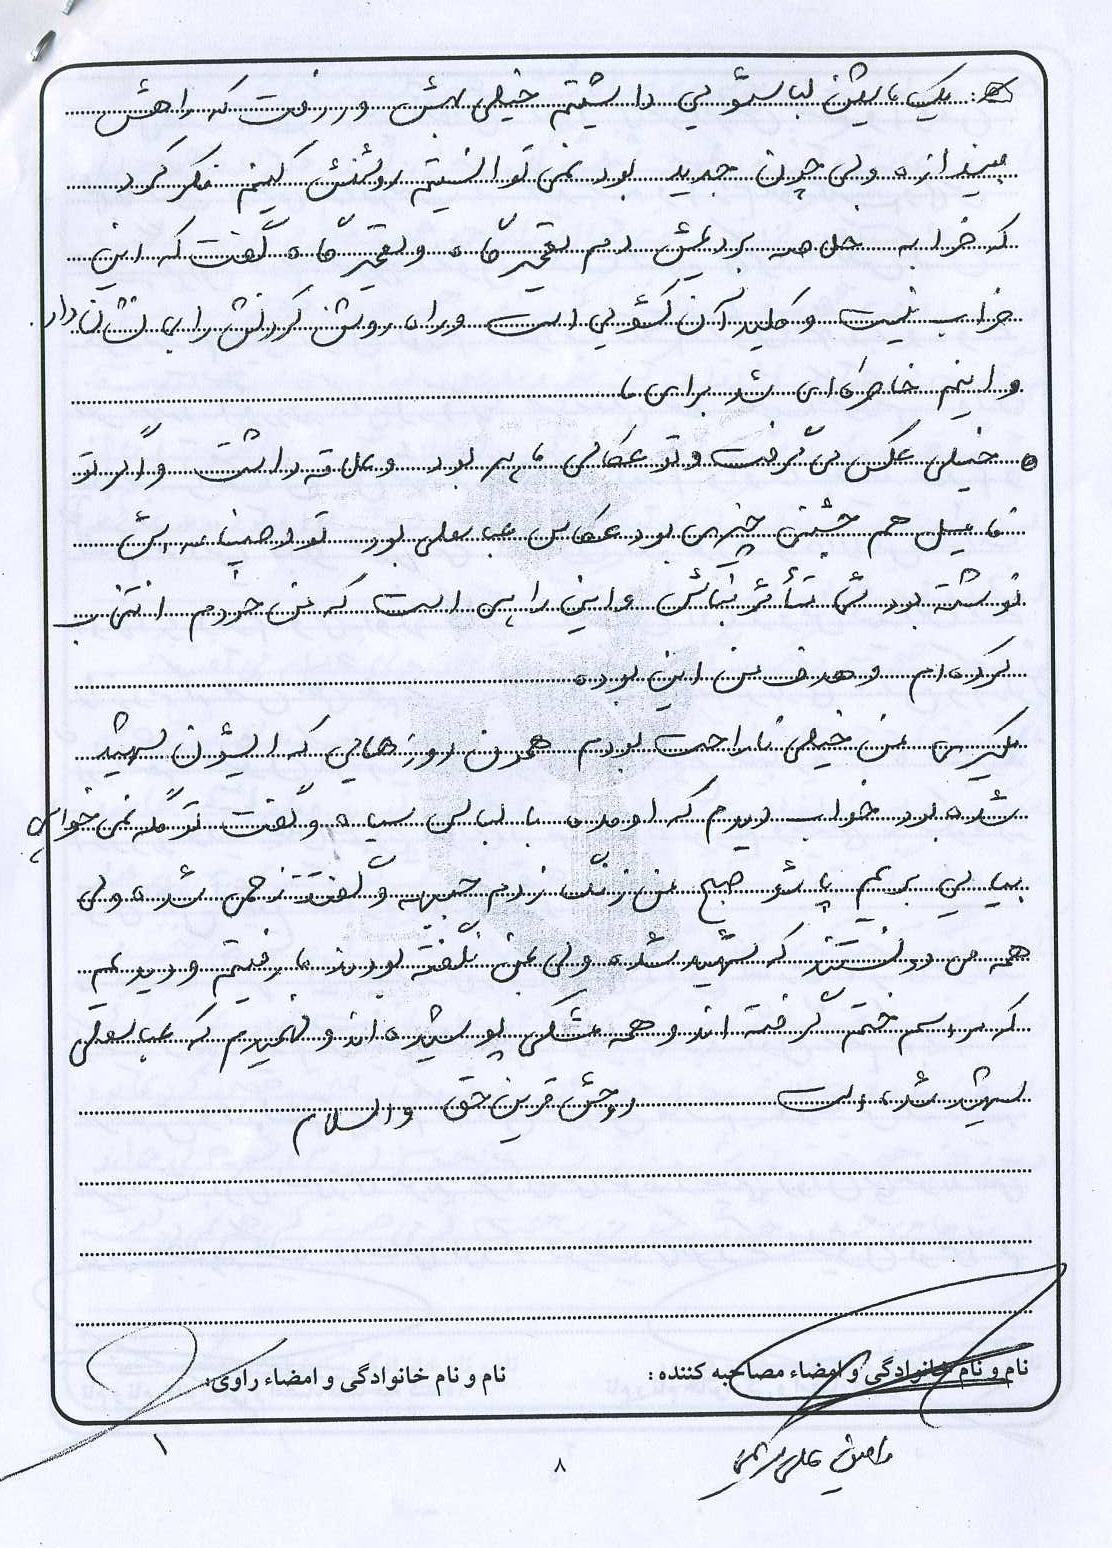 یک ماشین لباسشویی داشتیم خیلی بهش ور رفت که راهش
بیندازه ولی چون جدید بود نمی توانستیم روشنش کنیم فکر کرد
که خرابه بردیمش دم تعمیرگاه و تعمیرگاه گفت که این
خراب نیست و کلید آن کشویی است و راه روشن کردنش را به ما نشان داد.
و اینم خاطره‌ای شد برای ما
خیلی عکس می گرفت و تو عکاسی ماهر بود و علاقه داشت و اگر تو
فامیل هم جشنی چیزی بود عکاس عباسعلی بود تو وصیتنامه اش
نوشته بود شما متأثر نباش و این راهی است که من خودم انتخاب
کرده ام و هدف من این بوده
یکیری من خیلی ناراحت بودم همون روزهایی که ایشون شهید
شده بود خواب دیدم که اومده با لباس سیاه و گفت تو مگه نمی خواهی
بیایی بریم پاشو صبح من زنگ زدم جبهه و گفتند زخمی شده ولی
همه می دونستند که شهید شده ولی بمن نگفته بودند ما رفتیم و دیدیم
که مراسم ختم گرفته اند و همه مشکی پوشیده اند و فهمیدیم که عباسعلی
شهید شده است روحش قرین حق والسلام
نام و نام خانوادگی و امضاء مصاحبه کننده: نام و نام خانوادگی و امضاء راوی:
۸